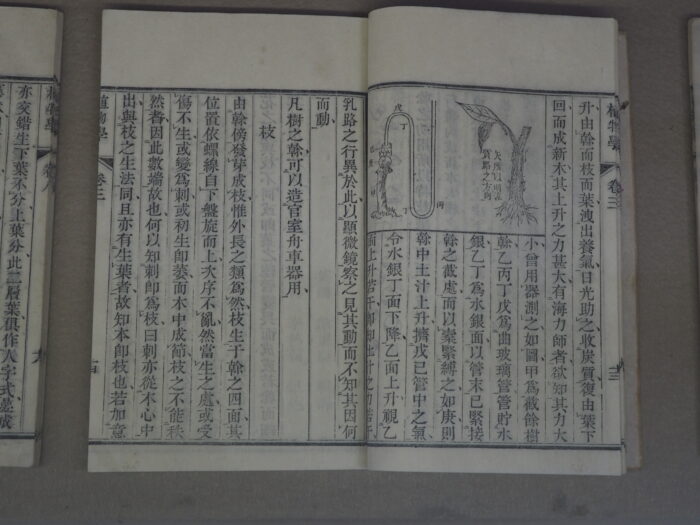 植物學
卷三
十三
升由幹而枝而葉洩出養氣日光助之收炭質復由葉下
回而成新木其上升之力甚大有海力師者欲知其力大
小曾用器測之如圖甲爲截餘樹
幹乙丙丁戊爲曲玻璃管管貯水
銀乙丁爲水銀面以管末己緊接
幹之截處而以索緊縛之如庚則
幹中土汁上升擠戊己管中之氣
令水銀丁面下降乙面上升視乙
面上升若干即知土汁之力若干
戊
丁
丙
乳路之行異於此以顯微鏡察之見其動而不知其因何
而動
凡樹之幹可以造官室舟車器用
枝
由幹傍發芽成枝惟外長之類爲然枝生于幹之四面其
位置依螺線自下盤旋而上次序不亂然當生之處或受
傷不生或變爲刺或初生即萎而木中成節枝之不能秩
然者因此數端故也何以知刺即爲枝曰刺亦從木心中
出與枝之生法同且亦有生葉者故知本即枝也若加意
植物學
卷三
植物學
卷
亦交錯生下葉不分上葉分此二層葉俱作人字式